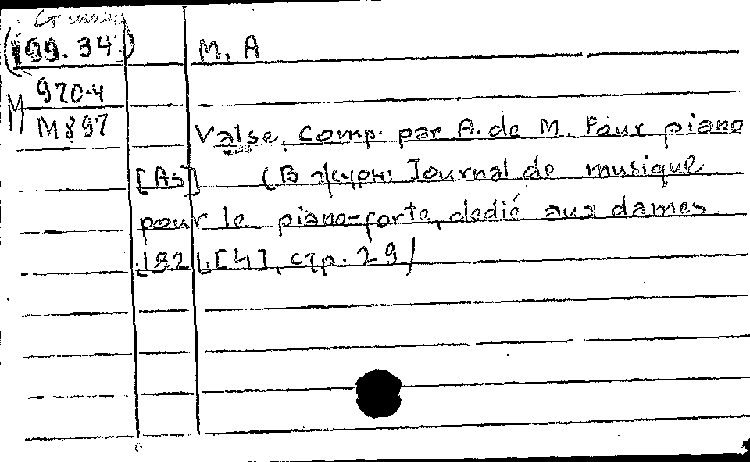 (199.34) M. A
M 920.4
M897
Valse, comp. par A. de M. Pour piano
[As] (В журн: Journal de musique
pour le piano-forte, dedié aux dames.
1821.[4], стр. 29)